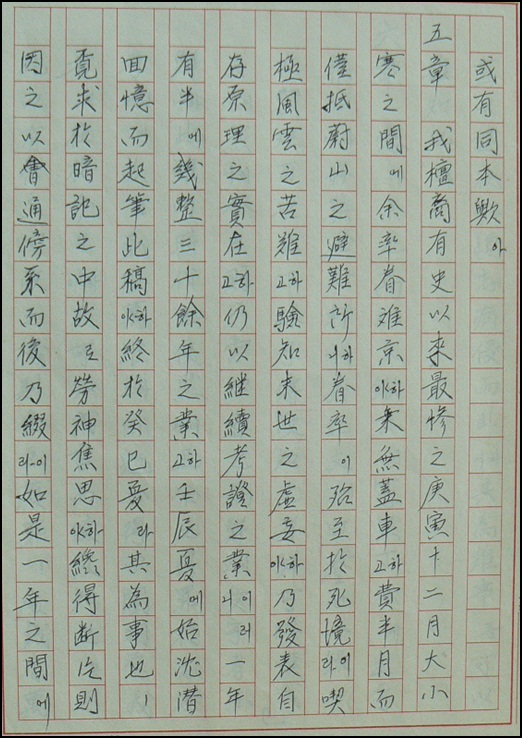 或有同本歟아
五章 我檀裔有史以來最慘之庚寅十二月大小
寒之間에余率眷难京하야乘無蓋車하고費半月而
僅抵蔚山之避難所하니眷率이殆至於死境이라喫
極風雲之苦難하고驗知末世之虛妄하야乃發表自
存原理之實在하고仍以継續考證之業이니러一年
有半에幾整三十餘年之業하고壬辰夏에始沈潛
回憶而起筆此稿하야終於癸巳夏라其為事也、
覔求於暗記之中故로勞神焦思하야纔得斷片則
因之以會通傍系而後乃綴이라如是一年之間에